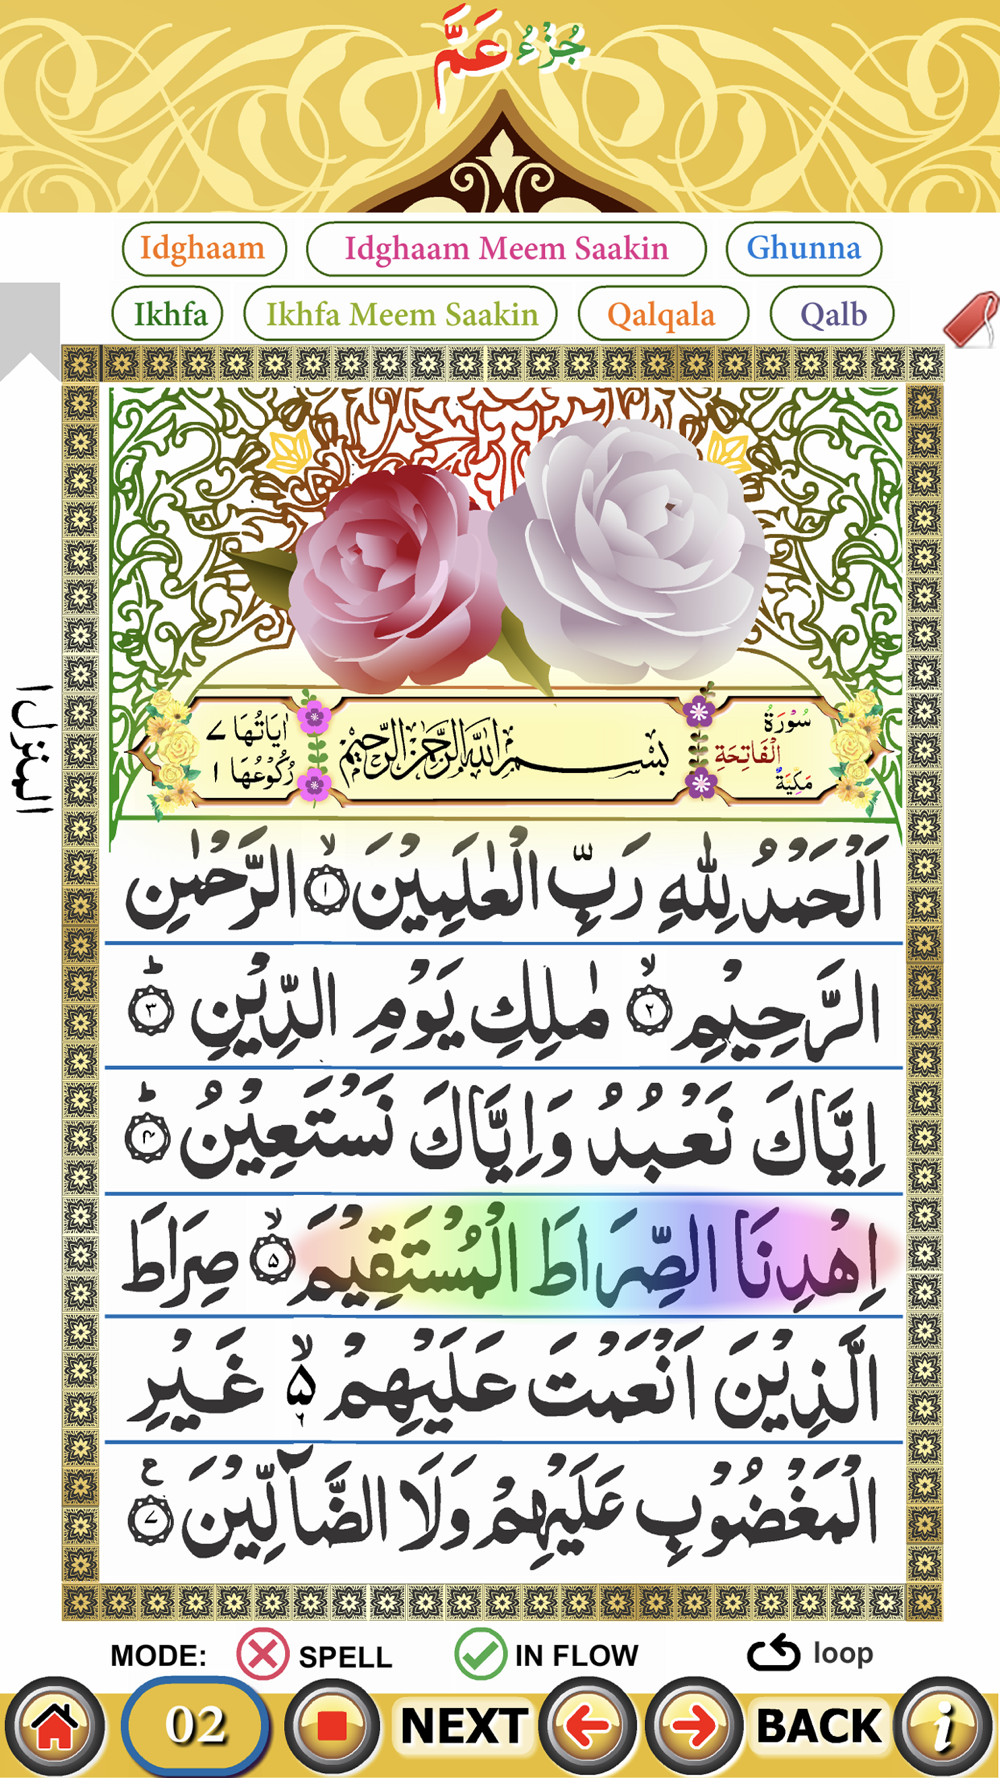 جُزْءُ عَمَّ
Idghaam Idghaam Meem Saakin Ghunna
Ikhfa Ikhfa Meem Saakin Qalqala Qalb
سُوْرَةُ
الْفَاتِحَةِ
مَكِيَّةٌ
بِسْمِ اللهِ الرَّحْمٰنِ الرَّحِيْمِ
اٰيَاتُهَا ۷
رُكُوْعُهَا ۱
المنزل ۱
اَلْحَمْدُ لِلّٰهِ رَبِّ الْعٰلَمِيْنَ ۙ﴿۱﴾ الرَّحْمٰنِ
الرَّحِيْمِ ۙ﴿۲﴾ مٰلِكِ يَوْمِ الدِّيْنِ ؕ﴿۳﴾
اِيَّاكَ نَعْبُدُ وَاِيَّاكَ نَسْتَعِيْنُ ؕ﴿۴﴾
اِهْدِنَا الصِّرَاطَ الْمُسْتَقِيْمَ ۙ﴿۵﴾ صِرَاطَ
الَّذِيْنَ اَنْعَمْتَ عَلَيْهِمْ ۙ۵ ۶ غَيْرِ
الْمَغْضُوْبِ عَلَيْهِمْ وَلَا الضَّآلِّيْنَ ع﴿۷﴾
MODE: SPELL IN FLOW loop
02 NEXT BACK i